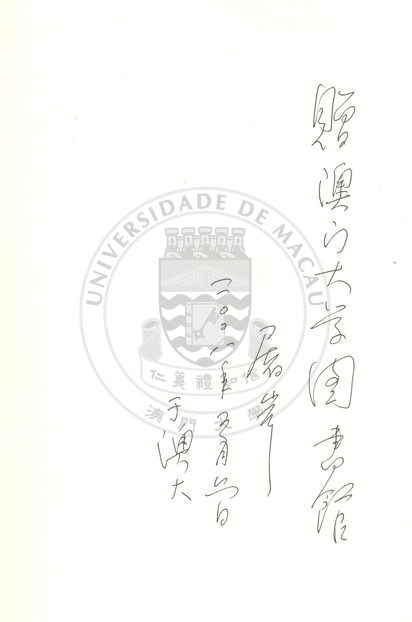 贈澳门大学图書館
屠岸
二〇〇八年五月六日
于澳大
UNIVERSIDADE DE MACAU
仁義禮知信
澳門大學